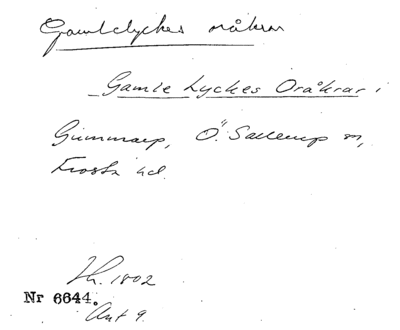 Gamlelyckes oråkrar
Gamle Lyckes Oråkrar i
Gummarp, Ö. Sallerup sn,
Frosta hd.
Lh. 1802
Nr 6644.
Akt 9.